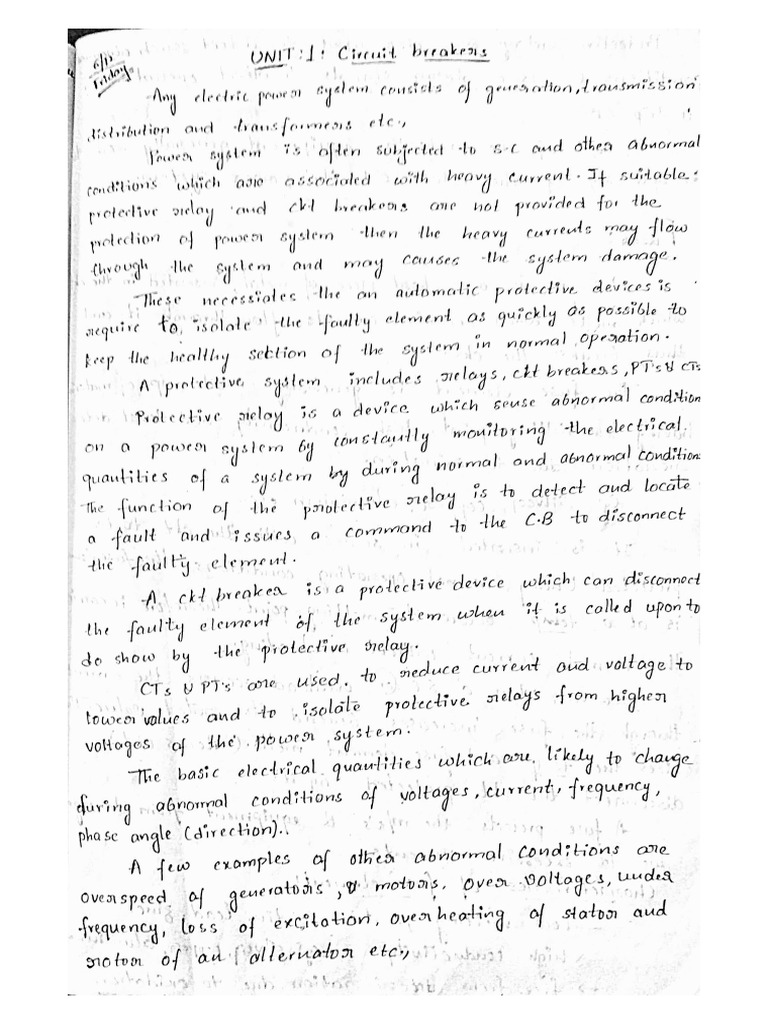 6/12
Friday
UNIT:1: Circuit breakers
Any electric power system consists of generation, transmission
distribution and transformers etc.,
Power system is often subjected to s-c and other abnormal
conditions which are associated with heavy current. If suitable
protective relay and ckt breakers are not provided for the
protection of power system then the heavy currents may flow
through the system and may causes the system damage.
These necessiates the an automatic protective devices is
require to isolate the faulty element as quickly as possible to
keep the healthy section of the system in normal operation.
A protective system includes relays, ckt breakers, PT's & CTs
Protective relay is a device which sense abnormal condition
on a power system by constantly monitoring the electrical
quantities of a system by during normal and abnormal condition
The function of the protective relay is to detect and locate
a fault and issues a command to the C.B to disconnect
the faulty element.
A ckt breaker is a protective device which can disconnect
the faulty element of the system when it is called upon to
do show by the protective relay.
CTs & PT's are used to reduce current and voltage to
lower values and to isolate protective relays from higher
voltages of the power system.
The basic electrical quantities which are likely to change
during abnormal conditions of voltages, current, frequency,
phase angle (direction)..
A few examples of other abnormal conditions are
overspeed of generators, & motors, over voltages, under
frequency, loss of excitation, over heating of stator and
rotor of an alternator etc.,